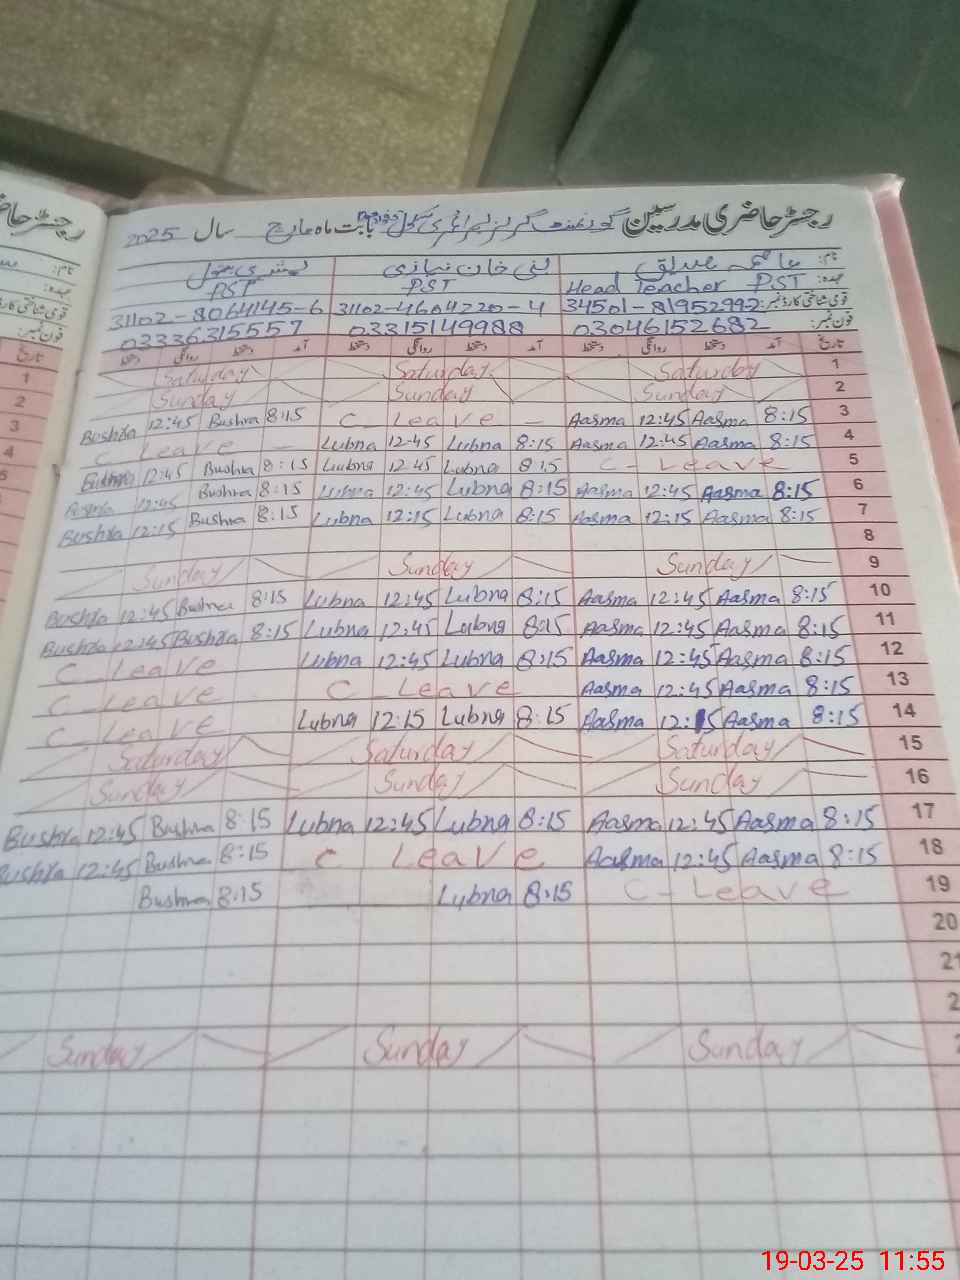 رجسٹر حاضری مدرسین گورنمنٹ گرلز پرائمری سکول بابت ماہ مارچ سال 2025
نام: عاصمہ صدیق لبنیٰ خان نیازی بشریٰ بتول
عہدہ: Head Teacher PST PST PST
قومی شناختی کارڈ نمبر: 34501-81952992 31102-4604220-4 31102-8064145-6
فون نمبر: 03046152682 03315149988 03336315557
تاریخ آمد دستخط روانگی دستخط آمد دستخط روانگی دستخط آمد دستخط روانگی دستخط
Saturday Saturday Saturday 1
Sunday Sunday Sunday 2
Bushra 12:45 Bushra 8:15 C - Leave - Aasma 12:45 Aasma 8:15 3
C Leave - Lubna 12-45 Lubna 8:15 Aasma 12:45 Aasma 8:15 4
12:45 Bushra 8:15 Lubna 12 45 Lubna 8:15 C - Leave 5
12:45 Bushra 8:15 Lubna 12:45 Lubna 8:15 Aasma 12:45 Aasma 8:15 6
Bushra 12:15 Bushra 8:15 Lubna 12:15 Lubna 8:15 Aasma 12:15 Aasma 8:15 7
8
Sunday Sunday Sunday 9
Bushra 12:45 Bushra 8:15 Lubna 12:45 Lubna 8:15 Aasma 12:45 Aasma 8:15 10
Bushra 12:45 Bushra 8:15 Lubna 12:45 Lubna 8:15 Aasma 12:45 Aasma 8:15 11
C - Leave Lubna 12:45 Lubna 8:15 Aasma 12:45 Aasma 8:15 12
C - Leave C - Leave Aasma 12:45 Aasma 8:15 13
C - Leave Lubna 12:15 Lubna 8:15 Aasma 12:15 Aasma 8:15 14
Saturday Saturday Saturday 15
Sunday Sunday Sunday 16
Bushra 12:45 Bushra 8:15 Lubna 12:45 Lubna 8:15 Aasma 12:45 Aasma 8:15 17
Bushra 12:45 Bushra 8:15 C Leave Aasma 12:45 Aasma 8:15 18
Bushra 8:15 Lubna 8:15 C - Leave 19
20
21
2
Sunday Sunday Sunday
19-03-25 11:55